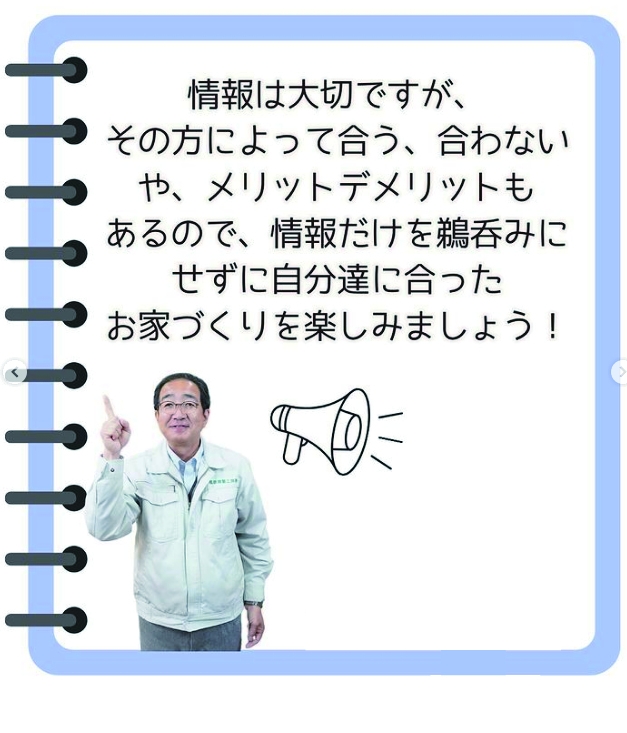 情報は大切ですが、
その方によって合う、合わない
や、メリットデメリットも
あるので、情報だけを鵜呑みに
せずに自分達に合った
お家づくりを楽しみましょう！